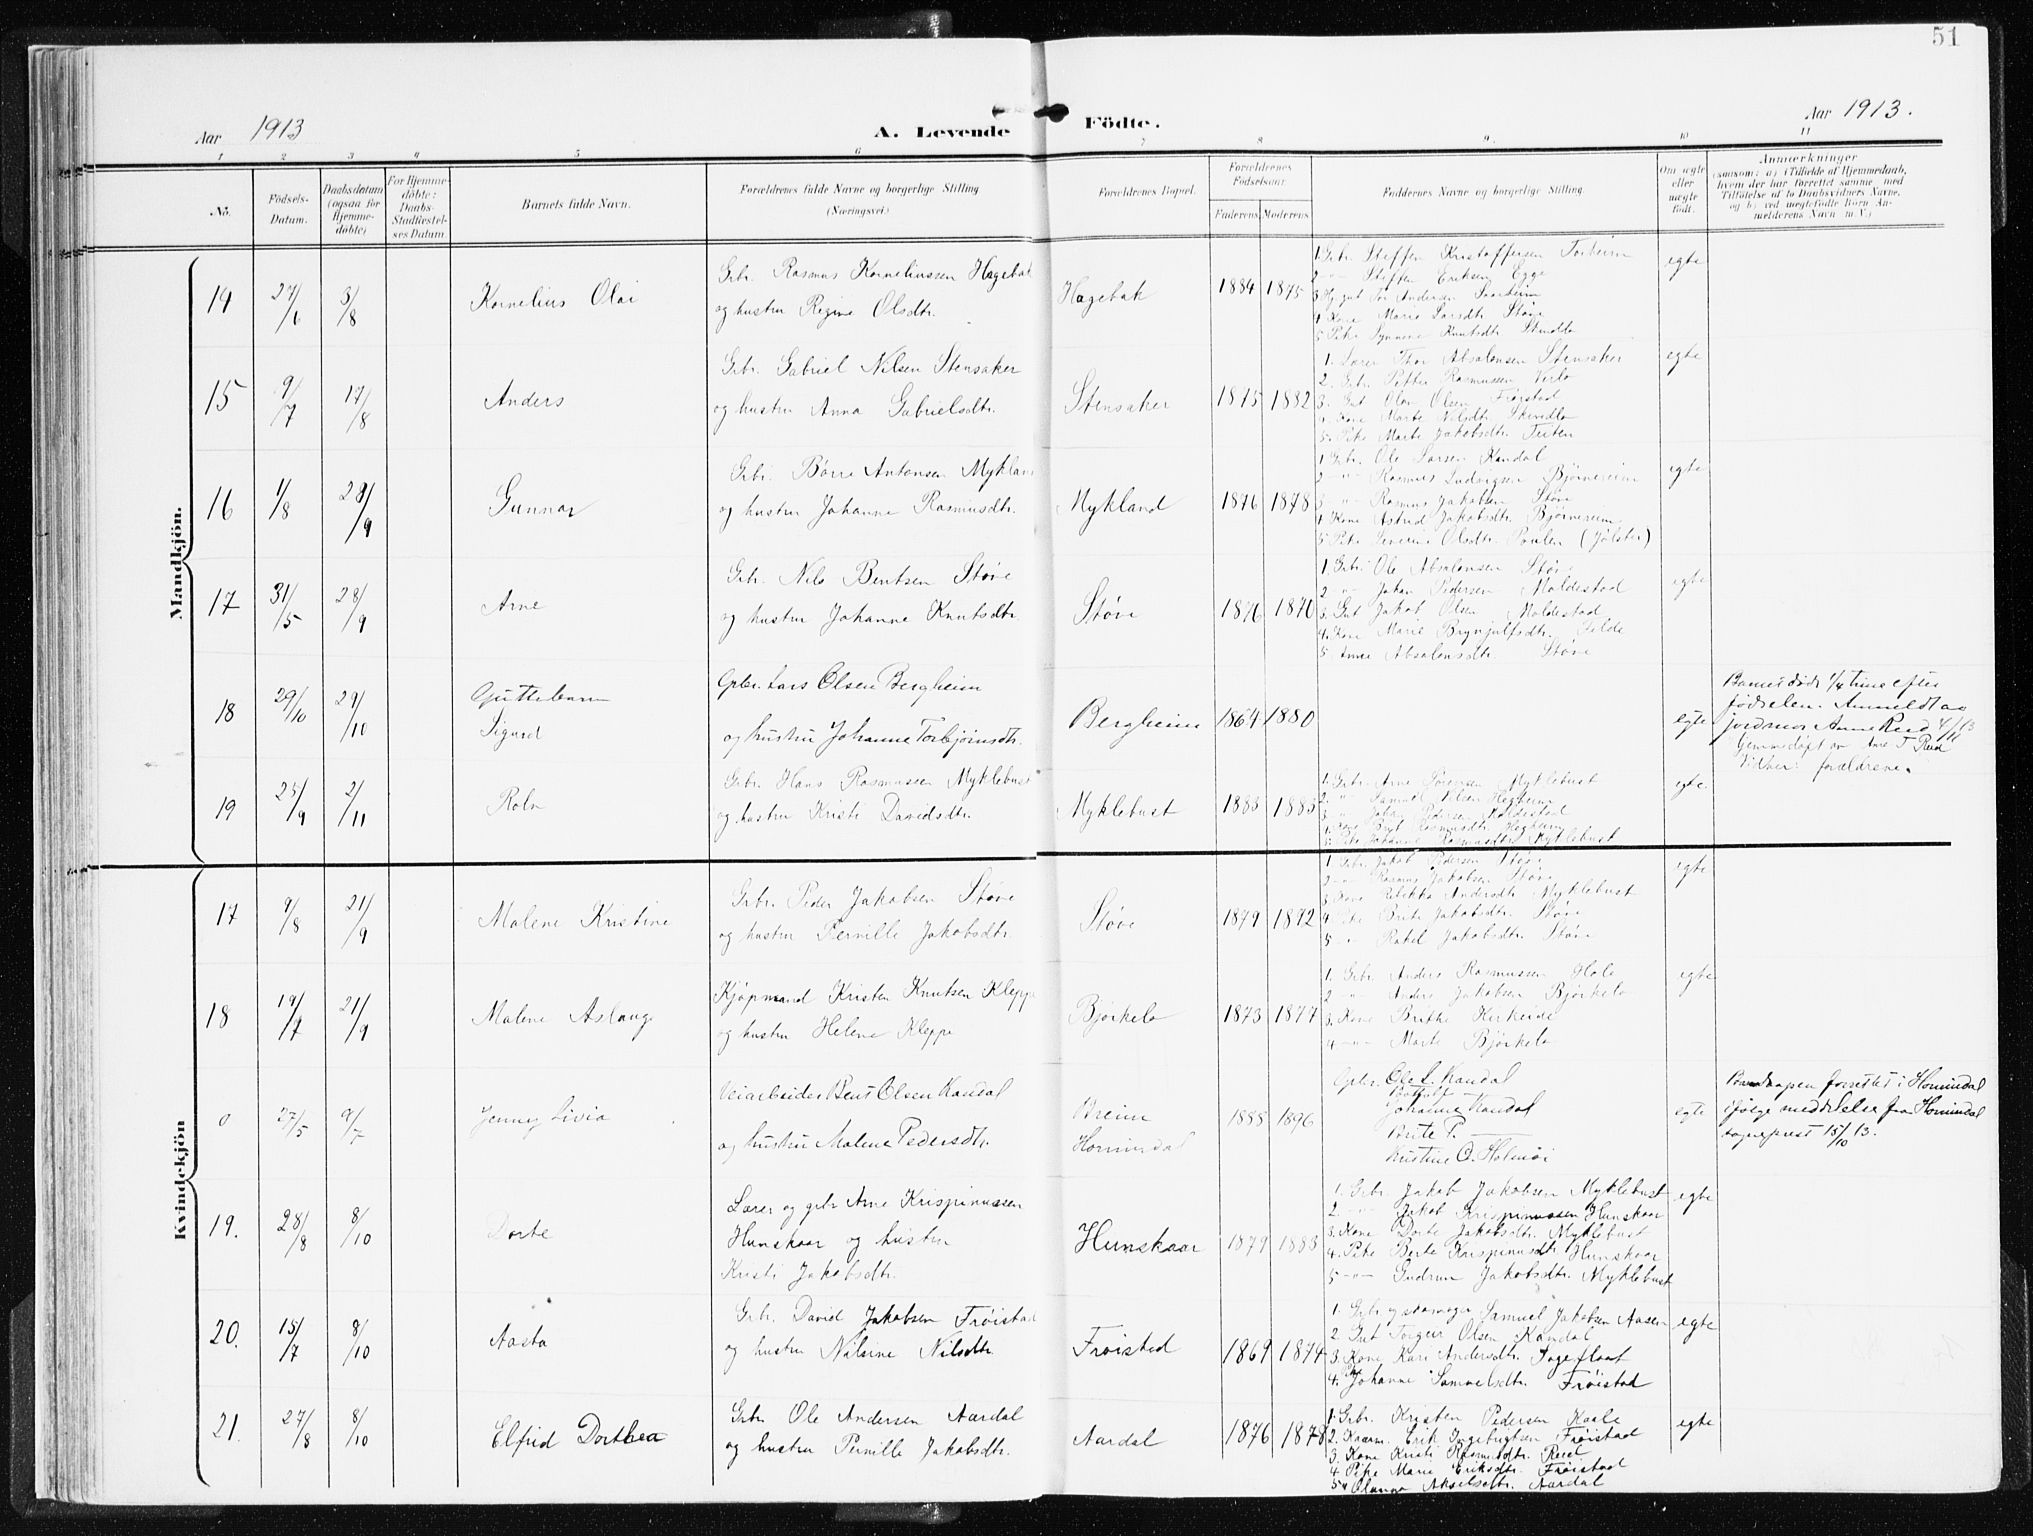 51
Aar 1913
A. Levende Födte.
Aar 1913.
1 2 3 4 5 6 7 8 9. 10 11
No.
Födsels-Datum.
Daabsdatum (ogsaa for Hjemme-döbte)
For Hjemme-döbte: Daabs-Stadfæstel-ses Datum.
Barnets fulde Navn.
Forældrenes fulde Navne og borgerlige Stilling (Næringsvei.)
Forældrenes Bopæl.
Forældrenes Födselsaar.
Faderens Moderens
Faddernes Navne og borgerlige Stilling.
Om ægte eller uægte födt.
Anmærkninger
(saasom: a) i Tilfælde af Hjemmedaab, hvem der har forrettet samme, med Tilföielse af to Daabsvidners Navne, og b) ved uægtefödte Börn An-melderens Navn m.V.)
Mandkjön.
14 27/6 3/8 Kornelius Olai
Grbr. Rasmus Korneliussen Hagebak
og hustru Regine Olsdtr.
Hagebak 1884 1875
1. Grbr. Steffen Kristoffersen Torheim
2 -"- Steffen Eriksen Egge
3. Gut Tor Andersen Saarheim
4 Kone Marie Larsdtr. Støve
5 Pike Synneve Knutsdtr.
egte
15 9/7 17/8 Anders
Grbr. Gabriel Nilsen Stensaker
og hustru Anna Gabrielsdtr.
Stensaker 1875 1882
1. Lærer Thor Absalonsen Stensaker
2. Grbr. Petter Rasmussen
3. Gut Olav Olsen Frøistad
4. Kone Marte Nilsdtr. Skredla
5. Pike Marte Jakobsdtr.
egte
16 1/8 28/9 Gunnar
Grbr. Børre Antonsen Mykland
og hustru Johanne Rasmusdtr.
Mykland 1876 1878
1 Grbr. Ole Larsen Kandal
2 -"- Rasmus Ludvigsen Bjørnereim
3 -"- Rasmus Jakobsen Støve
4 Kone Astrid Jakobsdtr. Bjørnereim
5 Pike Severine Olsdtr. (Jølster)
egte
17 31/5 28/9 Arne
Grbr. Nils Bentsen Støve
og hustru Johanne Knutsdtr.
Støve 1876 1870
1. Grbr. Ole Absalonsen Støve
2 -"- Johan Pedersen Moldestad
3. Gut Jakob Olsen Moldestad
4. Kone Marie Brynjulfsdtr. Felde
5 Anne Absalonsdtr. Støve
egte
18 29/10 29/10 Guttebarn
Sigurd
Gbr. Lars Olsen Bergheim
og hustru Johanne Torbjørnsdtr.
Bergheim 1864 1880
egte
Barnet døde 1/4 time efter
fødselen. Anmeldt av
jordmor Anne Reed 4/11 13
Hjemmedøpt av Anne T. Reed
Vidner: forældrene.
19 25/9 2/11
Grbr. Hans Rasmussen Myklebust
og hustru Kristi Davidsdtr.
Myklebust 1883 1883
1. Grbr. Arne Myklebust
2. -"- Samuel Nilsen Hegheim
3 -"- Johan Pedersen Moldestad
4. Kone Brit Rasmusdtr. Hegheim
5. Pike Johanne Rasmusdtr. Myklebust
egte.
Kvindekjön
17 9/8 21/9 Malene Kristine
Grbr. Peder Jakobsen Støve
og hustru Pernille Jakobsdtr.
Støve 1879 1872
1 Grbr. Jakob Pedersen Støve
2 -"- Rasmus Jakobsen Støve
3 Kone Rebekka Andersdtr. Myklebust
4 Pike Brite Jakobsdtr. Støve
5 -"- Rakel Jakobsdtr. Støve
egte
18 19/7 21/9 Malene Aslaug
Kjøpmand Kristen Knutsen Kleppe
og hustru Helene Kleppe
Bjørkelo 1873 1877
1. Grbr. Anders Rasmussen Hole
2 -"- Anders Jakobsen Bjørkelo
3. Kone Brithe Kirkeide
4 -"- Marte Bjørkelo
egte
0 27/5 9/7 Jenny Livia
Veiarbeider Bent Olsen Kandal
og hustru Malene Pedersdtr.
Breim
Hornindal
1888 1896
Gbr. Ole L. Kandal
Johanne Kandal
Brite P.
Kristine O. Holmøi
egte
forrettet i Hornindal
ifølge meddelelse fra Hornindal
sogneprest 15/10 13.
19. 28/8 8/10 Dorte
Lærer og grbr. Arne Krispinussen
Hunskaar og hustru
Kristi Jakobsdtr.
Hunskaar 1879 1883
1. Grbr. Jakob Jakobsen Myklebust
2. -"- Jakob Krispinussen Hunskaar
3. Kone Dorte Jakobsdtr. Myklebust
4. Pike Berte Krispinusdtr. Hunskaar
5 -"- Gudrun Jakobsdtr. Myklebust
egte
20. 15/7 8/10 Aasta
Grbr. David Jakobsen Frøistad
og hustru Nilsine Nilsdtr.
Frøistad 1869 1874
1. Grbr. og skomager Samuel Jakobsen Aasen
2 Gut Torgeir Olsen Kandal
3. Kone Kari Andersdtr. Fogeflaat
4. Pike Johanne Samuelsdtr. Frøistad
egte
21. 27/8 8/10 Elfrid Dorthea
Grbr. Ole Andersen Aardal
og hustru Pernille Jakobsdtr.
Aardal 1876 1878
1. Grbr. Kristen Pedersen Kaale
2. Kaarm. Erik Ingebrigtsen Frøistad
3. Kone Kristi Rasmusdtr. Reed
4 Pike Marie Eriksdtr. Frøistad
5 " Olanna Akselsdtr. Aardal
egte